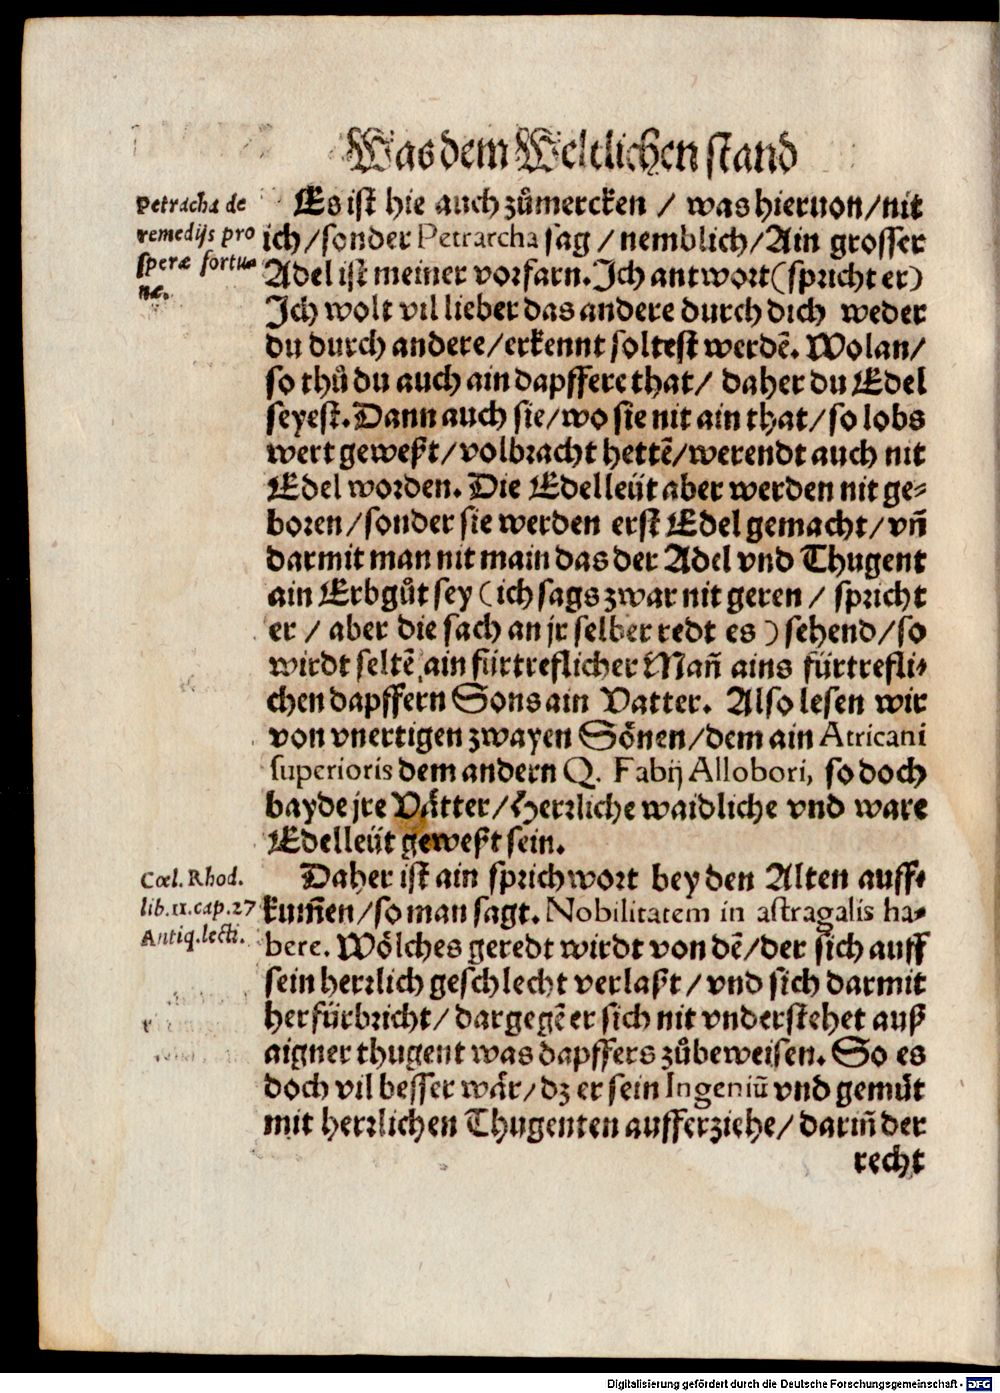 Was dem Weltlichen stand
Petracha de
remedijs pro
speræ fortu-
næ.
Es ist hie auch zůmercken / was hieruon/nit
ich/sonder Petrarcha sag / nemblich/Ain grosser
Adel ist meiner vorfarn. Ich antwort(spricht er)
Ich wolt vil lieber das andere durch dich weder
du durch andere/erkennt soltest werdē. Wolan/
so thů du auch ain dapffere that/ daher du Edel
seyest. Dann auch sie/wo sie nit ain that/so lobs
wert geweßt/volbracht hettē/werendt auch nit
Edel worden. Die Edelleüt aber werden nit ge-
boren/sonder sie werden erst Edel gemacht/vñ
darmit man nit main das der Adel vnd Thugent
ain Erbgůt sey (ich sags zwar nit geren / spricht
er / aber die sach an jr selber redt es ) sehend/so
wirdt seltē ain fürtreflicher Mañ ains fürtrefli-
chen dapffern Sons ain Vatter. Also lesen wir
von vnertigen zwayen Sönen/dem ain Atricani
superioris dem andern Q. Fabij Allobori, so doch
bayde jre Vätter/Herrliche waidliche vnd ware
Edelleüt geweßt sein.
Cœl. Rhod.
lib.11.cap.27
Antiq.lecti.
Daher ist ain sprichwort bey den Alten auff-
kum̃en/so man sagt. Nobilitatem in astragalis ha-
bere. Wölches geredt wirdt von dē/der sich auff
sein herrlich geschlecht verlaßt/vnd sich darmit
herfürbricht/dargegē er sich nit vnderstehet auß
aigner thugent was dapffers zůbeweisen. So es
doch vil besser wär/dz er sein Ingeniũ vnd gemüt
mit herrlichen Thugenten aufferziehe/darin̄ der
recht
Digitalisierung gefördert durch die Deutsche Forschungsgemeinschaft - DFG